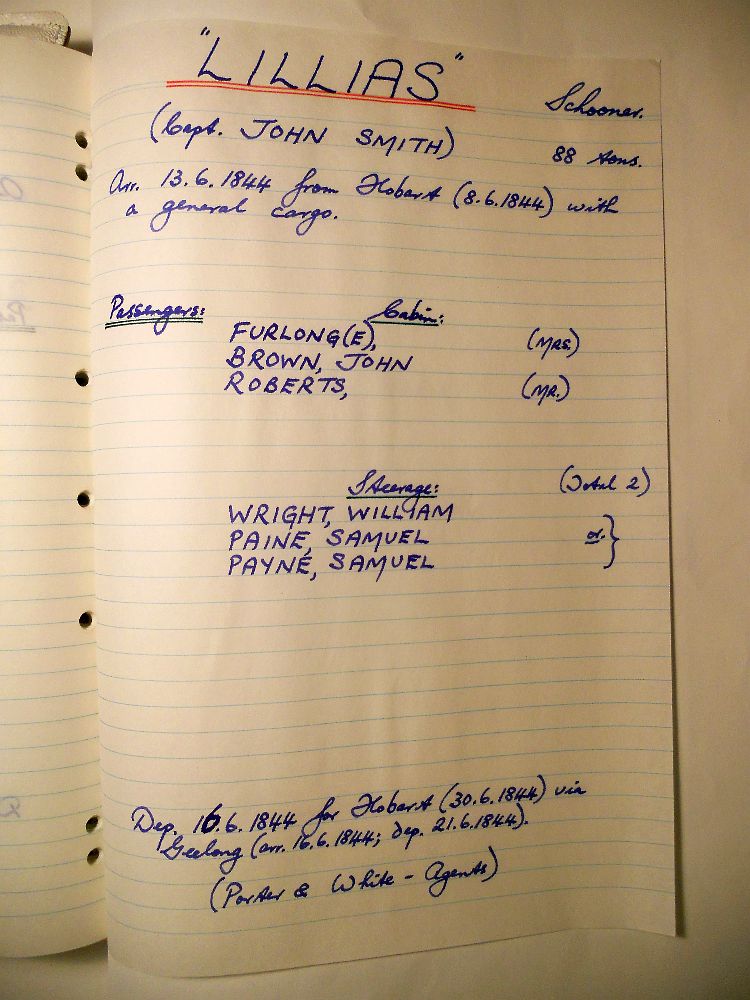 "LILLIAS"
Schooner.
(Capt. JOHN SMITH)
88 tons.
Arr. 13.6.1844 from Hobart (8.6.1844) with
a general cargo.
Passengers: Cabin:
FURLONG(E), (MRS.)
BROWN, JOHN
ROBERTS, (MR.)
Steerage: (Total 2)
WRIGHT, WILLIAM
PAINE, SAMUEL or }
PAYNE, SAMUEL
Dep. 16.6.1844 for Hobart (30.6.1844) via
Geelong (arr. 16.6.1844; dep. 21.6.1844).
(Porter & White - Agents)